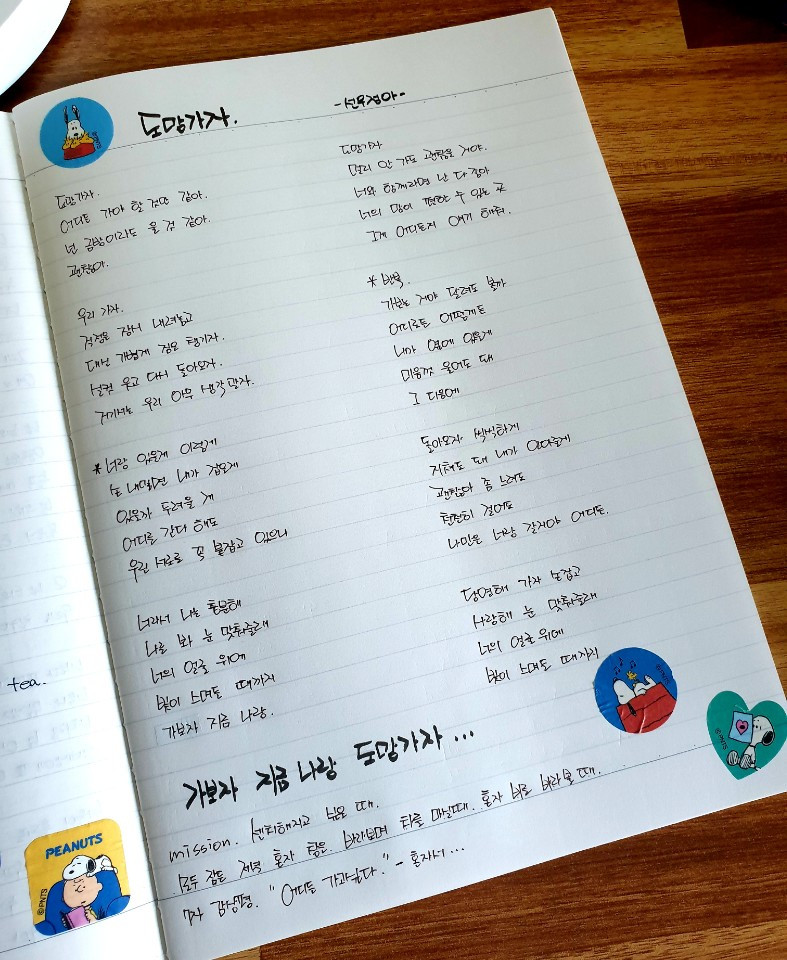 도망가자.
-선우정아-
도망가자.
어디든 가야 할 것만 같아.
넌 금방이라도 울 것 같아.
괜찮아.
우리 가자.
걱정은 잠시 내려놓고
대신 가볍게 짐만 챙기자.
실컷 웃고 다시 돌아오자.
거기서는 우리 아무 생각 말자.
*너랑 있을게 이렇게
손 내밀면 내가 잡을게
있을까 두려울 게
어디를 간다 해도
우린 서로를 꼭 붙잡고 있으니
너라서 나는 충분해
나를 봐 눈 맞춰줄래
너의 얼굴 위에
빛이 스며들 때까지
가보자 지금 나랑.
도망가자
멀리 안 가도 괜찮을 거야.
너와 함께라면 난 다 좋아
너의 맘이 편할 수 있는 곳
그게 어디든지 얘기 해줘.
*반복.
가보는 거야 달려도 볼까
어디로든 어떻게든
내가 옆에 있을게
마음껏 울어도 돼
그 다음에
돌아오자 씩씩하게
지쳐도 돼 내가 안아줄게
괜찮아 좀 느려도
천천히 걸어도
나만은 너랑 갈거야 어디든.
당연해 가자 손잡고
사랑해 눈 맞춰줄래
너의 얼굴 위에
빛이 스며들 때까지
가보자 지금 나랑 도망가자...
mission. 센치해지고 싶은 때.
모두 잠든 저녁 혼자 창문 바라보며 티를 마실때. 혼자 바라볼 때.
감상평. "어디든 가과싶다." - 혼자서...
tea.
PEANUTS
©PNTS
©PNTS
©PNTS
©PNTS